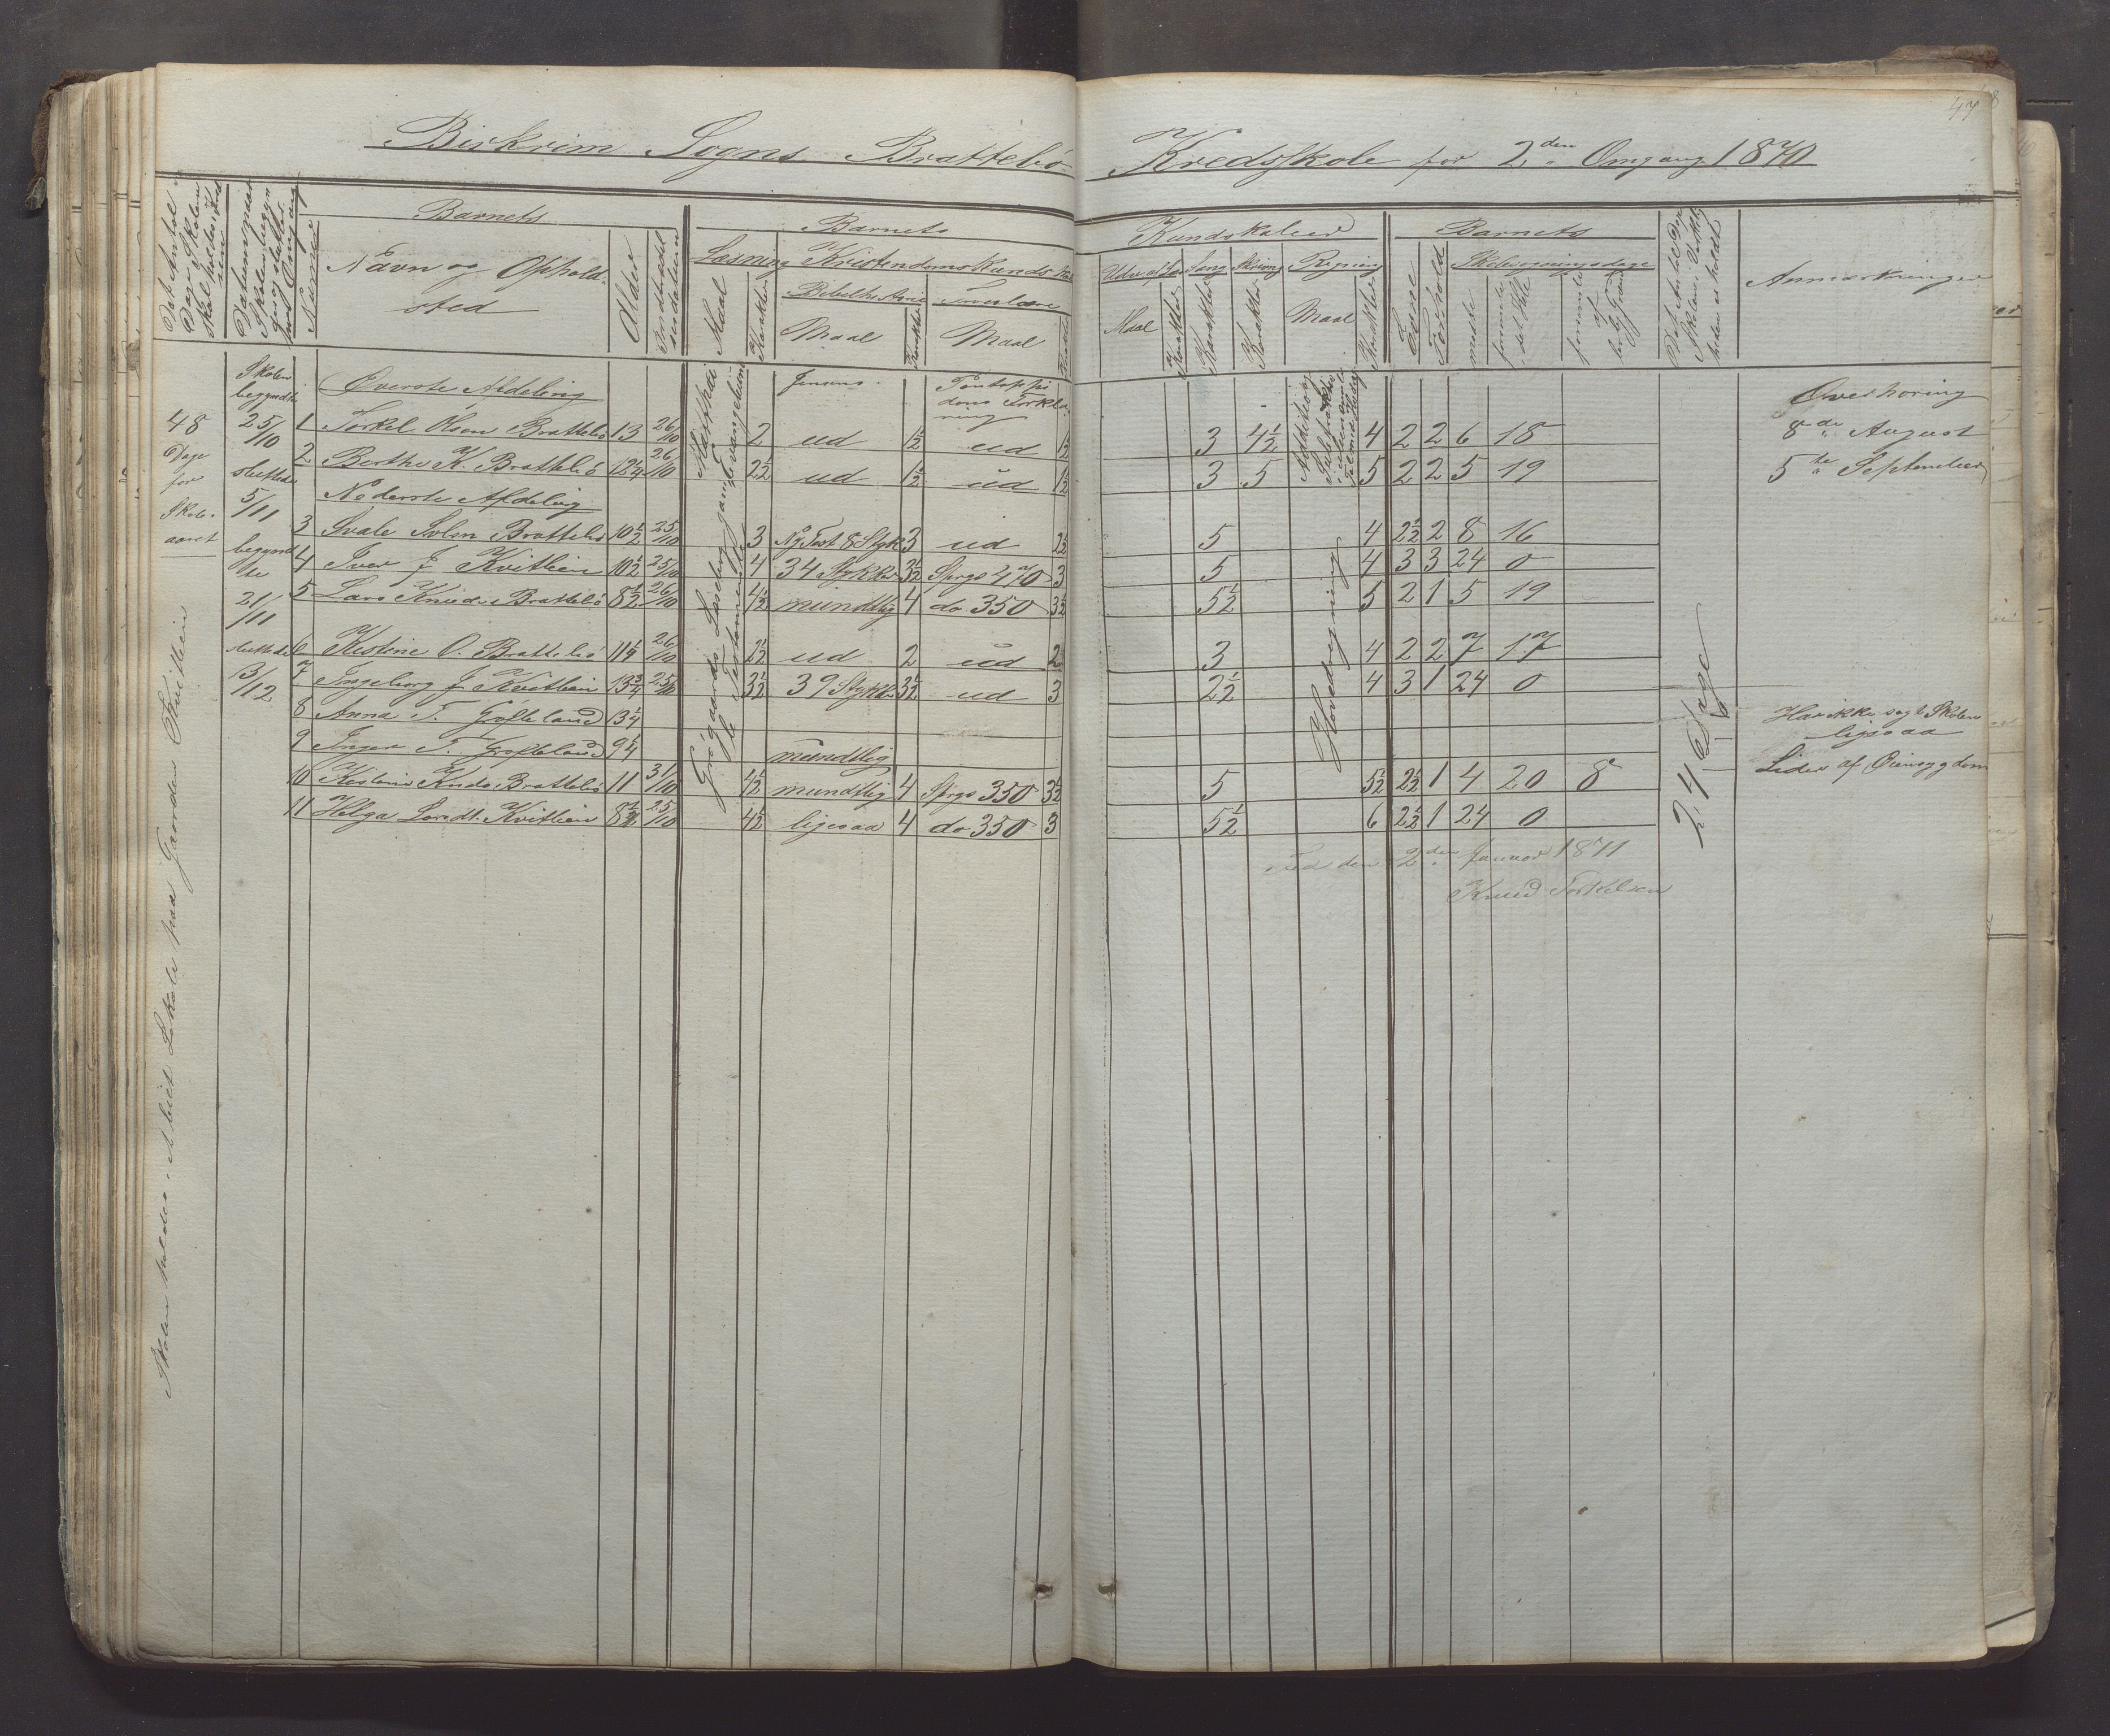 47
Birkrim Sogns Brattebø Kredsskole for 2den Omgang 1870
Det Antal Dage Skolen skal holdes i Kredsen
Datum naar Skolen begyndte og sluttede hver Omgang
Barnets
Numer
Navn og Opholdssted
Alder
Indtrædelses
Barnets Kundskaber
Læsning
Maal
Karakter
Kristendomskundskab
Bibelhistorie
Maal
Karakter
Troeslære
Maal
Udv. af
Maal
Karakter
Sang
Karakter
Skrivning
Karakter
Regning
Maal
Karakter
Barnets
Evne
Forhold
Skolesøgningsdage
mødte
forsømte i det Hele
forsømte af lovlig Grund
Det Antal Dage Skolen i Virkeligheden er holdt
Anmærkninger
48 Dage for Skoleaaret
Skolen begyndte 25/10
sluttede 5/11
begyndte 21/11
sluttede 13/12
Øverste Afdeling Jensens Pontoppidans Forklaring Overhøring
1 Torkel Olsen Brattebø 13 26/10 2 ud 1½ ud 1½ 3 4½ 4 2 2 6 18 8de August
2 Berthe K. Brattebø 12¾ 26/10 2½ ud 1½ ud 1½ 3 5 5 2 2 5 19 5te September
Nederste Afdeling
3 Svale Solsn Brattebø 10½ 25/10 3 Ny Test 8 Stykk 3 ud 2½ 5 4 2½ 2 8 16
4 Iver J Kvitlein 10½ 25/10 4 34 Stykker 3½ Sprgs 470 3 5 4 3 3 24 0
5 Lars Knuds Brattebø 8½ 26/10 4½ mundtlig 4 do 350 3½ 5½ 5 2 1 5 19
6 Kistine O. Brattebø 11½ 26/10 2½ ud 2 ud 2 3 4 2 2 7 17
7 Ingeborg J Kvitlein 13¾ 25/10 3½ 39 Stykker 3½ ud 3 2½ 4 3 1 24 0
8 Anna T. Grøfteland 13¼ Har ikke søgt Skolen
9 Inger T. Grøfteland 9¼ mundtlig ligesaa
10 Kistine Knds. Brattebø 11 31/10 4½ mundtlig 4 Sprgs 350 3½ 5 5½ 2½ 1 4 20 8 Lider af Øiensygdom
11 Helga Larsdt. Kvitlein 8¾ 25/10 4½ ligesaa 4 do 350 3 5½ 6 2½ 1 24 0
Grøgaards Læsebog samt Testamente
Hovedregning
24 Dage
den 2den Januar 1871
Knud Torkelsen
Skolen holdes i et leiet Lokale paa Gaarden Kvitlein